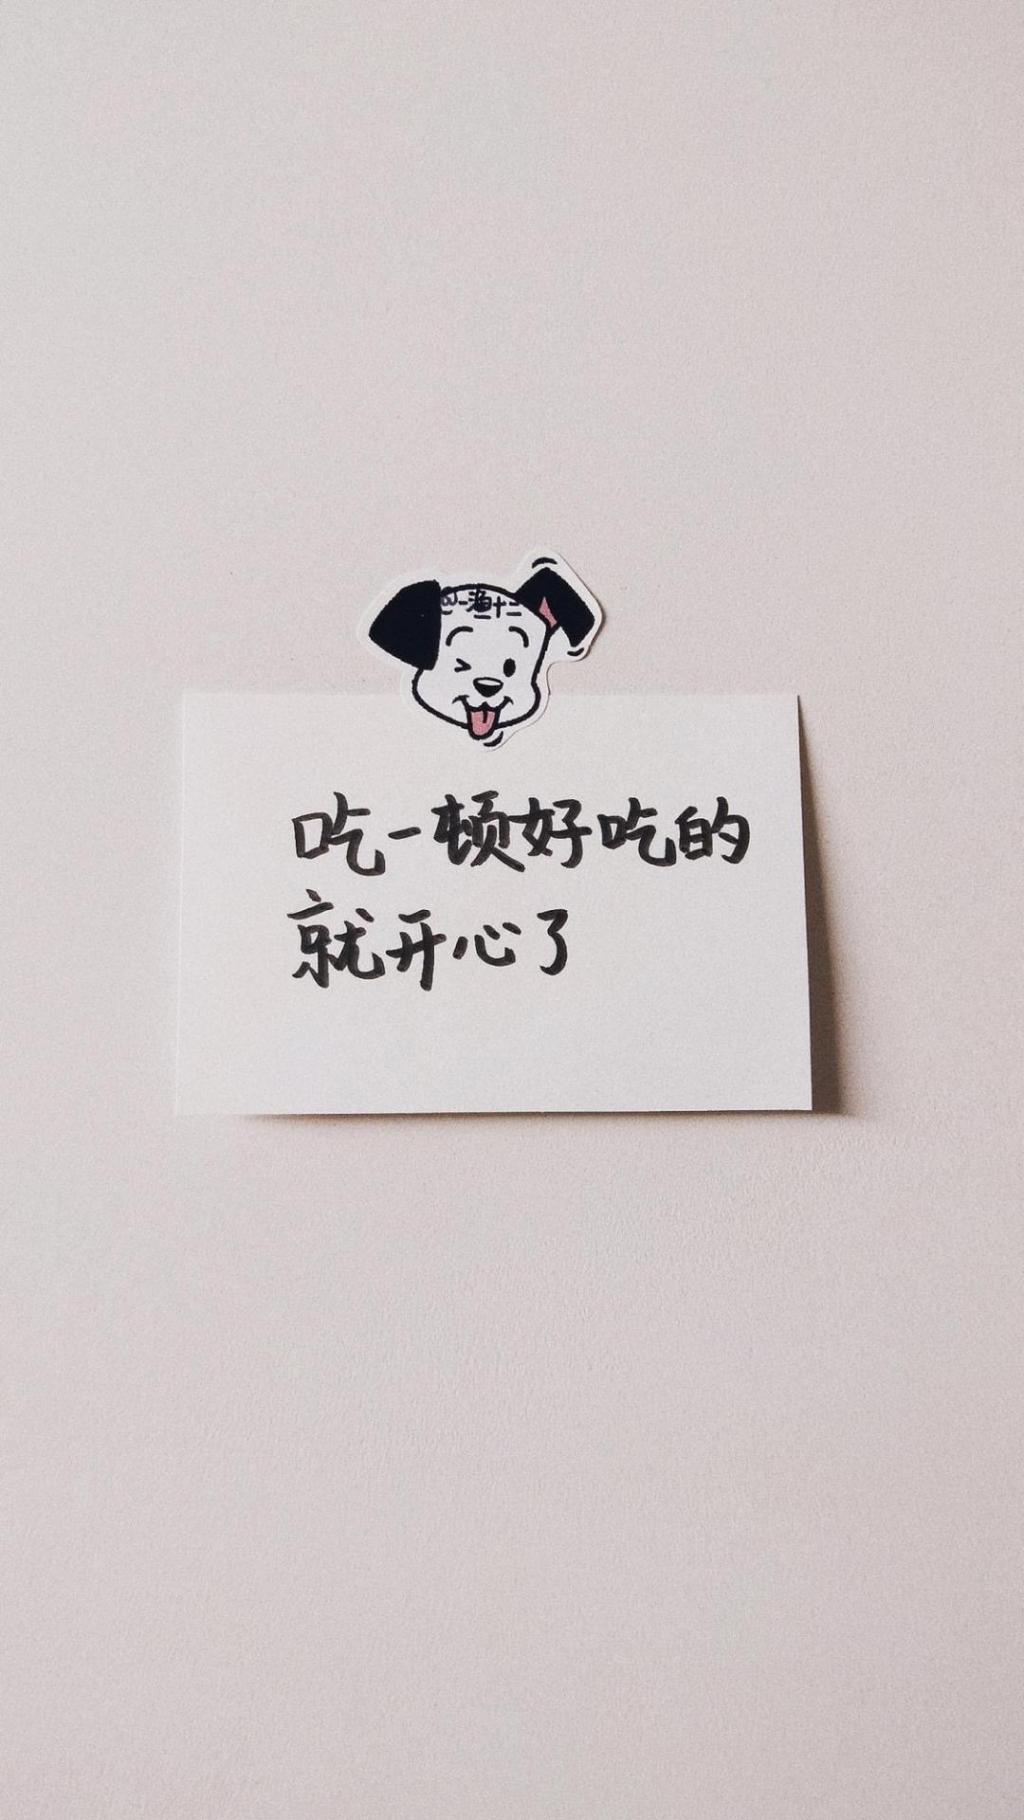 @一渔十二
吃一顿好吃的
就开心了